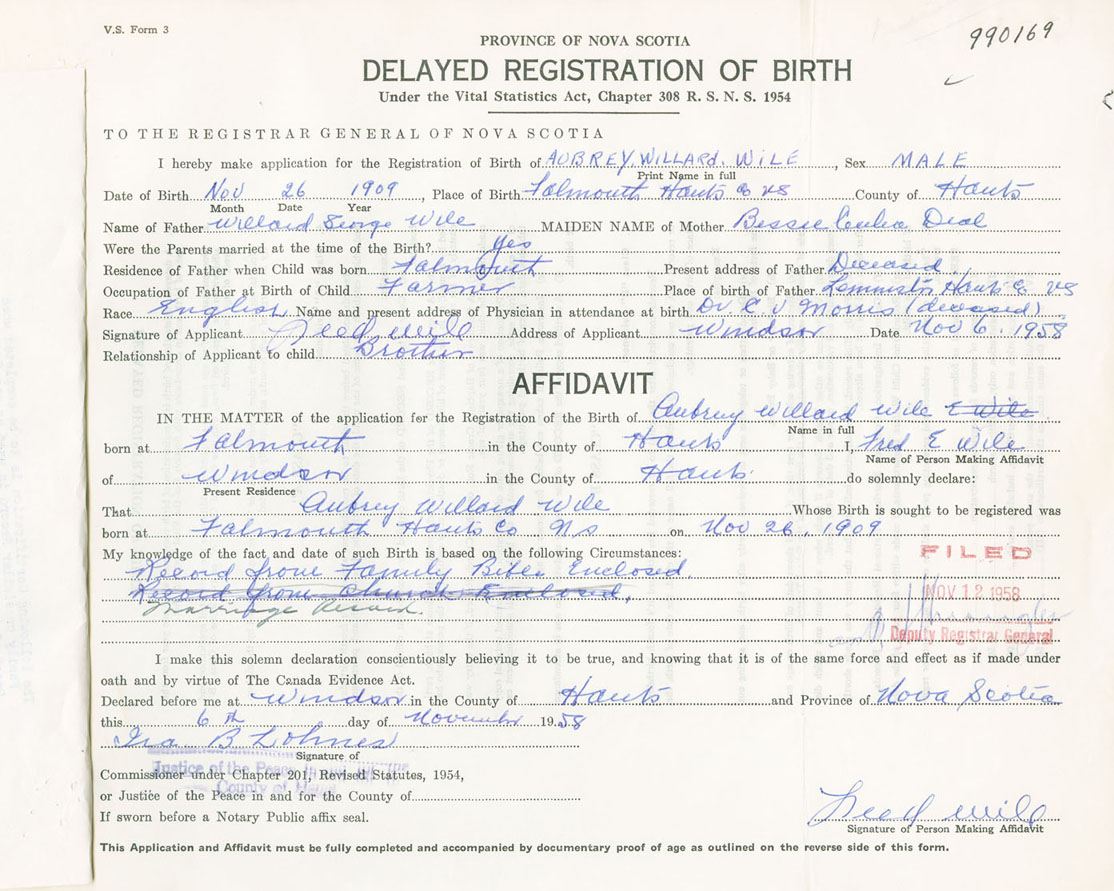 V.S. Form 3
990169
PROVINCE OF NOVA SCOTIA
DELAYED REGISTRATION OF BIRTH
Under the Vital Statistics Act, Chapter 308 R. S. N. S. 1954
TO THE REGISTRAR GENERAL OF NOVA SCOTIA
I hereby make application for the Registration of Birth of AUBREY WILLARD. WILE, Sex MALE
Print Name in full
Date of Birth Nov 26 1909, Place of Birth Falmouth Hants Co NS County of Hants
Month Date Year
Name of Father Willard George Wile MAIDEN NAME of Mother Bessie Deal
Were the Parents married at the time of the Birth? Yes
Residence of Father when Child was born Falmouth Present address of Father Deceased
Occupation of Father at Birth of Child Farmer Place of birth of Father Hants Co NS
Race English Name and present address of Physician in attendance at birth Dr. Morris (deceased)
Signature of Applicant Fred Wile Address of Applicant Windsor Date Nov 6, 1958
Relationship of Applicant to child Brother
AFFIDAVIT
IN THE MATTER of the application for the Registration of the Birth of Aubrey Willard Wile E Wile
Name in full
born at Falmouth in the County of Hants I, Fred E Wile
Name of Person Making Affidavit
of Windsor in the County of Hants do solemnly declare:
Present Residence
That Aubrey Willard Wile Whose Birth is sought to be registered was
born at Falmouth Hants Co NS on Nov 26, 1909
My knowledge of the fact and date of such Birth is based on the following Circumstances:
Record from Family Bible Enclosed.
Record from Church Enclosed,
Marriage Record.
FILED
NOV 12 1958
Deputy Registrar General
I make this solemn declaration conscientiously believing it to be true, and knowing that it is of the same force and effect as if made under
oath and by virtue of The Canada Evidence Act.
Declared before me at Windsor in the County of Hants and Province of Nova Scotia
this 6th day of November 1958
Ira B Lohnes
Signature of
Justice of the Peace
Commissioner under Chapter 201, Revised Statutes, 1954,
County of
or Justice of the Peace in and for the County of
If sworn before a Notary Public affix seal.
Fred Wile
Signature of Person Making Affidavit
This Application and Affidavit must be fully completed and accompanied by documentary proof of age as outlined on the reverse side of this form.